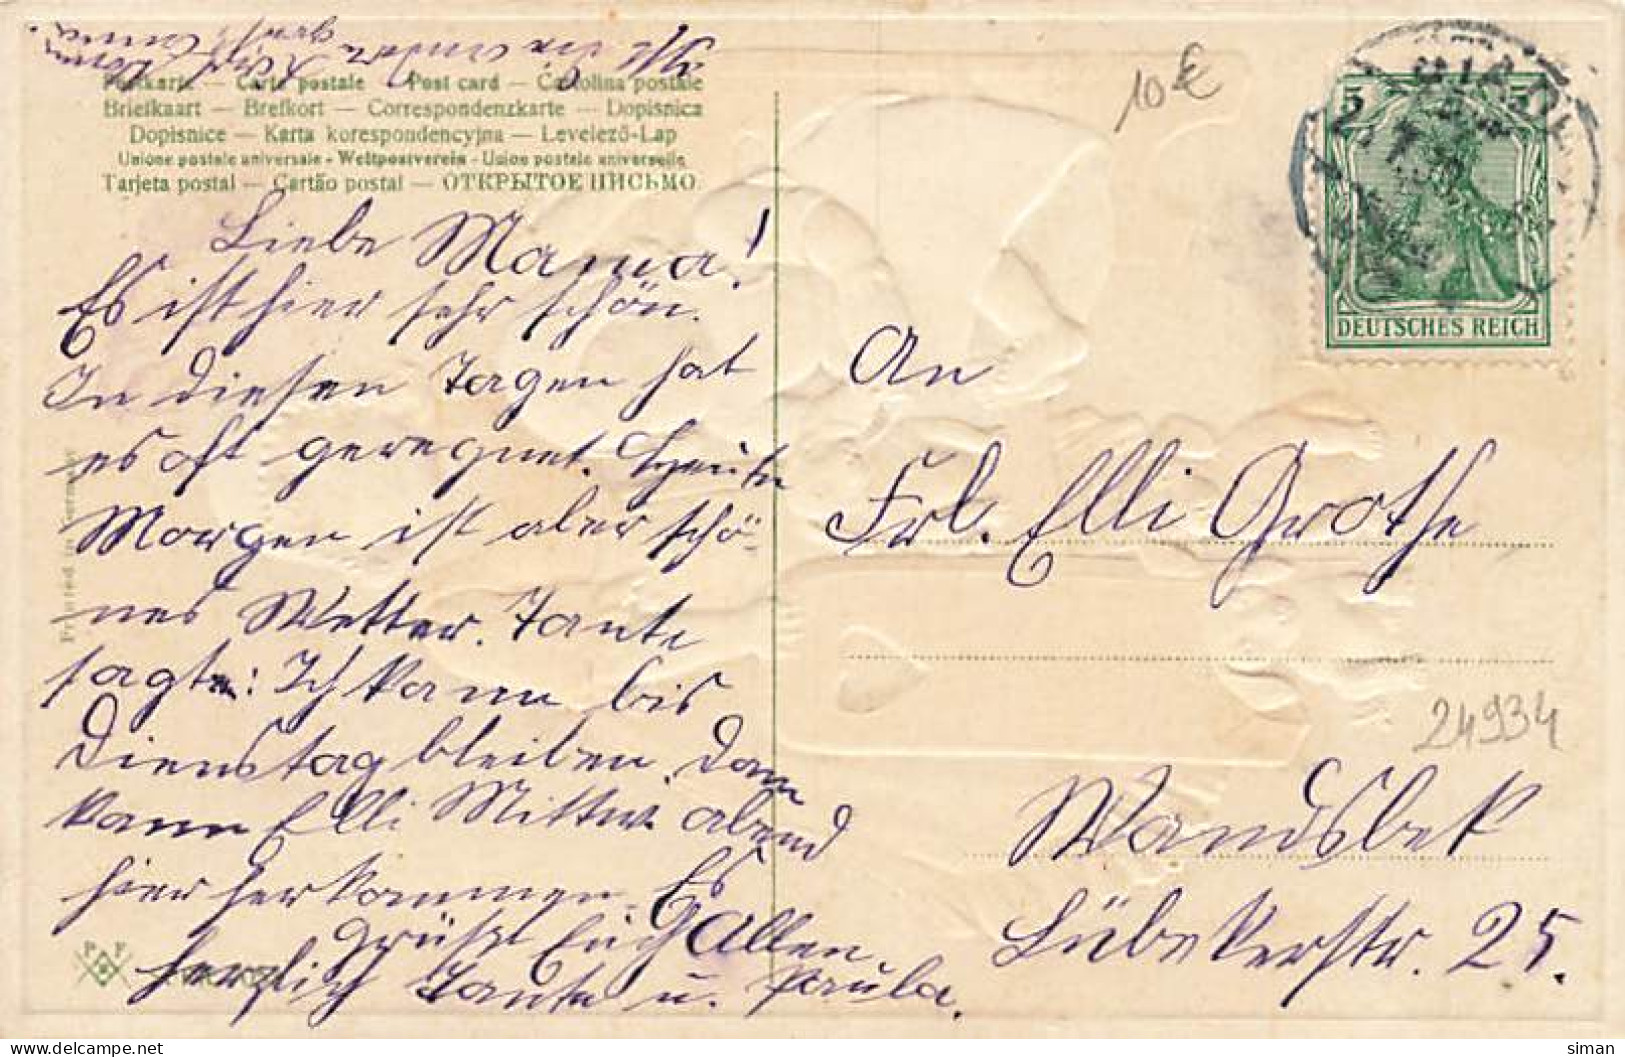 Postkarte — Carte postale — Post card — Cartolina postale
Briefkaart — Brefkort — Correspondenzkarte — Dopisnica
Dopisnice — Karta korespondencyjna — Levelező-Lap
Unione postale universale - Weltpostverein - Union postale universelle
Tarjeta postal — Cartão postal — ОТКРЫТОЕ ПИСЬМО
10 €
5 5
DEUTSCHES REICH
Liebe Mama!
Es ist hier sehr schön.
In diesen Tagen hat
es oft geregnet. Heute
Morgen ist aber schö-
nes Wetter. Tante
sagte: Ich kann bis
Dienstag bleiben. Dann
kann Elli Mittw. abend
hier her kommen. Es
grüßt Euch Allen
herzlich Tante u. Paula.
An
Frl. Elli Grothe
24934
Wandsbek
Lübekerstr. 25.
Printed in Germany
P F
siman